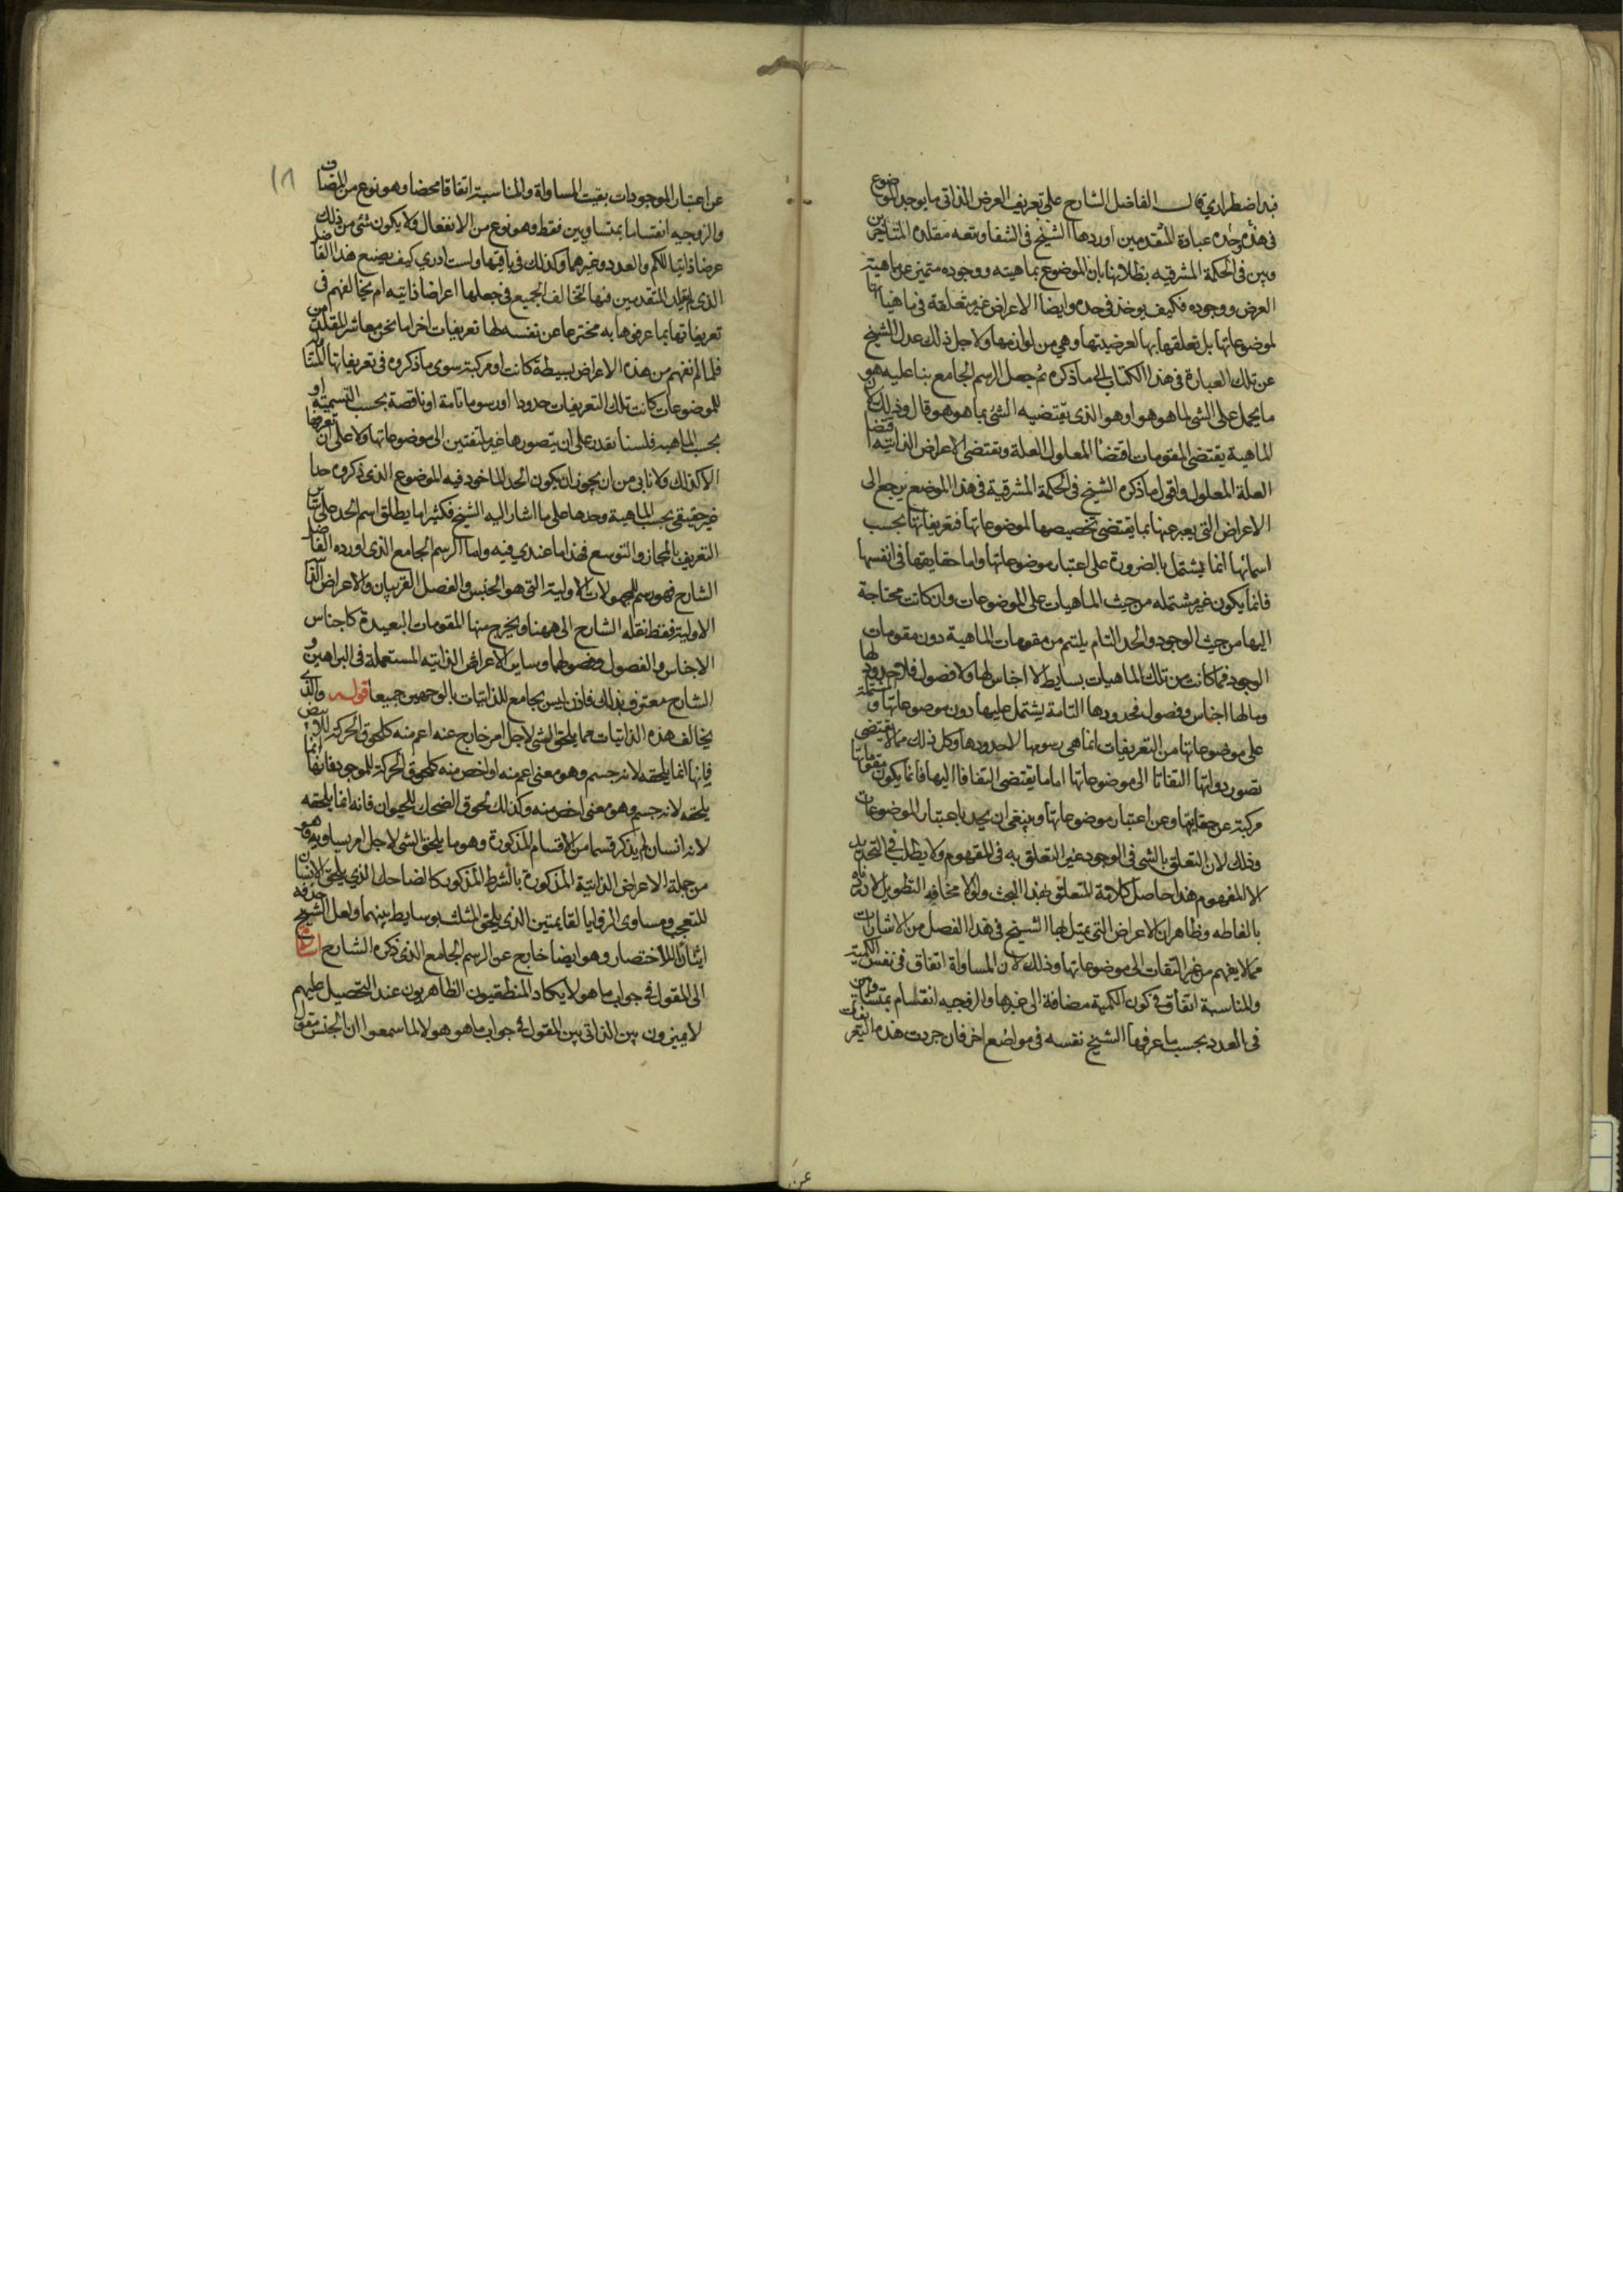 فيه اضطراري قال الفاضل الشارح على تعريف العرض الذاتي ما يوجد الموضوع
في حده وحده عبارة المتقدمين اوردها الشيخ في الشفا وتبعه مقلده المتاخرين
وبين في الحكمة المشرقيه بطلانها بان الموضوع بماهيته ووجوده متميز عن ماهية
العرض ووجوده فكيف يوخذ في حده وايضا الاعراض غير متعلقة في ماهياتها
لموضوعاتها بل تعلقها بها لعرضيتها وهي من لوازمها ولاجل ذلك عدل الشيخ
عن تلك العبارة في هذا الكتاب الى ما ذكره ثم جعل الرسم الجامع بنا عليه هو
ما يحمل على الشي لما هو هو او هو الذي يقتضيه الشي بما هو هو قال وذلك لان
الماهية يقتضي المقومات اقتضا المعلول العلة وتقتضي الاعراض الذاتيه اقتضا
العلة المعلول واقول ما ذكره الشيخ في الحكمة المشرقية في هذا الموضع يرجع الى
الاعراض التي يعبر عنها بما يقتضي تخصيصها لموضوعاتها فتعريفاتها بحسب
اسمائها انما يشتمل بالضرورة على اعتبار موضوعاتها واما حقايقها في انفسها
فانما يكون غير مشتمله من حيث الماهيات على الموضوعات وان كانت محتاجة
اليها من حيث الوجود والحد التام يلتم من مقومات الماهية دون مقومات
الوجود فما كانت من تلك الماهيات بسايط لا اجناس لها ولا فصول فلا حدود لها
وما لها اجناس وفصول فحدودها التامة يشتمل عليها دون موضوعاتها والمشتملة
على موضوعاتها من التعريفات انما هي رسومها لا حدودها وكل ذلك مما لا يقتضي
تصور ذواتها التفاتا الى موضوعاتها اما ما يقتضي التفاتا اليها فانما يكون مفهوماتها
مركبة عن حقايقها وعن اعتبار موضوعاتها وينبغي ان يحد باعتبار الموضوعات
وذلك لان التعلق بالشي في الوجود غير التعلق به في المفهوم ولا يطلب في التحديد
الا المفهوم هذا حاصل كلامه المتعلق بهذا البحث ولولا مخافه التطويل لاوردناه
بالفاظه وظاهر ان الاعراض التي يمثل بها الشيخ في هذا الفصل من الاشارات
مما لا يفهم من غير التفات الى موضوعاتها وذلك لان المساواة اتفاق في نفس الكمية
والمناسبة اتفاق في كون الكمية مضافة الى غيرها والزوجيه انقسام بمتساويين
في العدد بحسب ما عرفها الشيخ نفسه في مواضع اخر فان جردت هذه التعريفات
عن اعتبار الموجودات بقيت المساواة والمناسبة اتفاقا محضا وهو نوع من المضاف
والزوجيه انقساما بمتساويين فقط وهو نوع من الانفعال ولا يكون شي من ذلك
عرضا ذاتيا للكم والعدد وغيرهما وكذلك في باقيها ولست ادري كيف يصنع هذا الفاضل
الذي يقلد المتقدمين منها تخالف الجميع في جعلها اعراضا ذاتيه ام يخالفهم في
تعريفاتها بما عرفوها به مخترعا عن نفسه لها تعريفات اخر اما نحن معاشر المقلدين
فلما لم نفهم من هذه الاعراض بسيطة كانت او مركبة سوى ما ذكروه في تعريفاتها المتناولة
للموضوعات كانت تلك التعريفات حدودا او رسوما تامة او ناقصة بحسب التسمية او
بحسب الماهيه فلسنا نقدر على ان نتصورها غير ملتفتين الى موضوعاتها ولا على ان نعرفها
الا كذلك ولا نابى من ان يجوز ان يكون الحد الماخوذ فيه الموضوع الذي ذكروه حدا
غير حقيقي بحسب الماهية وحدها على ما اشار اليه الشيخ فكثيرا ما يطلق اسم الحد على ساير
التعريف بالمجاز والتوسع فهذا ما عندي فيه واما الرسم الجامع الذي اورده الفاضل
الشارح فهو رسم للمحمولات الاولية التي هو الجنس والفصل القريبان والاعراض الذاتية
الاولية فقط نقله الشارح الى ههنا ويخرج منها المقومات البعيدة كاجناس
الاجناس والفصول وفصولها وساير الاعراض الذاتيه المستعملة في البراهين و
الشارح معترف بذلك فاذن ليس بجامع للذاتيات بالوجهين جميعا قوله والذي
يخالف هذه الذاتيات مما يلحق الشي لاجل امر خارج عنه اعم منه كلحوق الحركة للابيض
فانها انما يلحقه لانه جسم وهو معنى اعم منه او اخص منه كلحوق الحركة للموجود فانها انما
يلحقه لانه جسم وهو معنى اخص منه وكذلك لحوق الضحك للحيوان فانه انما يلحقه
لانه انسان لم يذكر قسما من الاقسام المذكورة وهو ما يلحق الشي لاجل امر يساويه وهو
من جملة الاعراض الذاتية المذكورة بالشرط المذكور كالضاحك الذي يلحق الانسان
للتعجب ومساوى الزوايا لقايمتين الذي يلحق المثلث بوسايط بينهما ولعل الشيخ حذفه
ايثارا للاختصار وهو ايضا خارج عن الرسم الجامع الذي ذكره الشارح اشارة
الى المقول في جواب ما هو لا يكاد المنطقيون الظاهريون عند التحصيل عليهم
لا يميزون بين الذاتي بين المقول في جواب ما هو هو لا لما سمعوا ان الجنس مقول